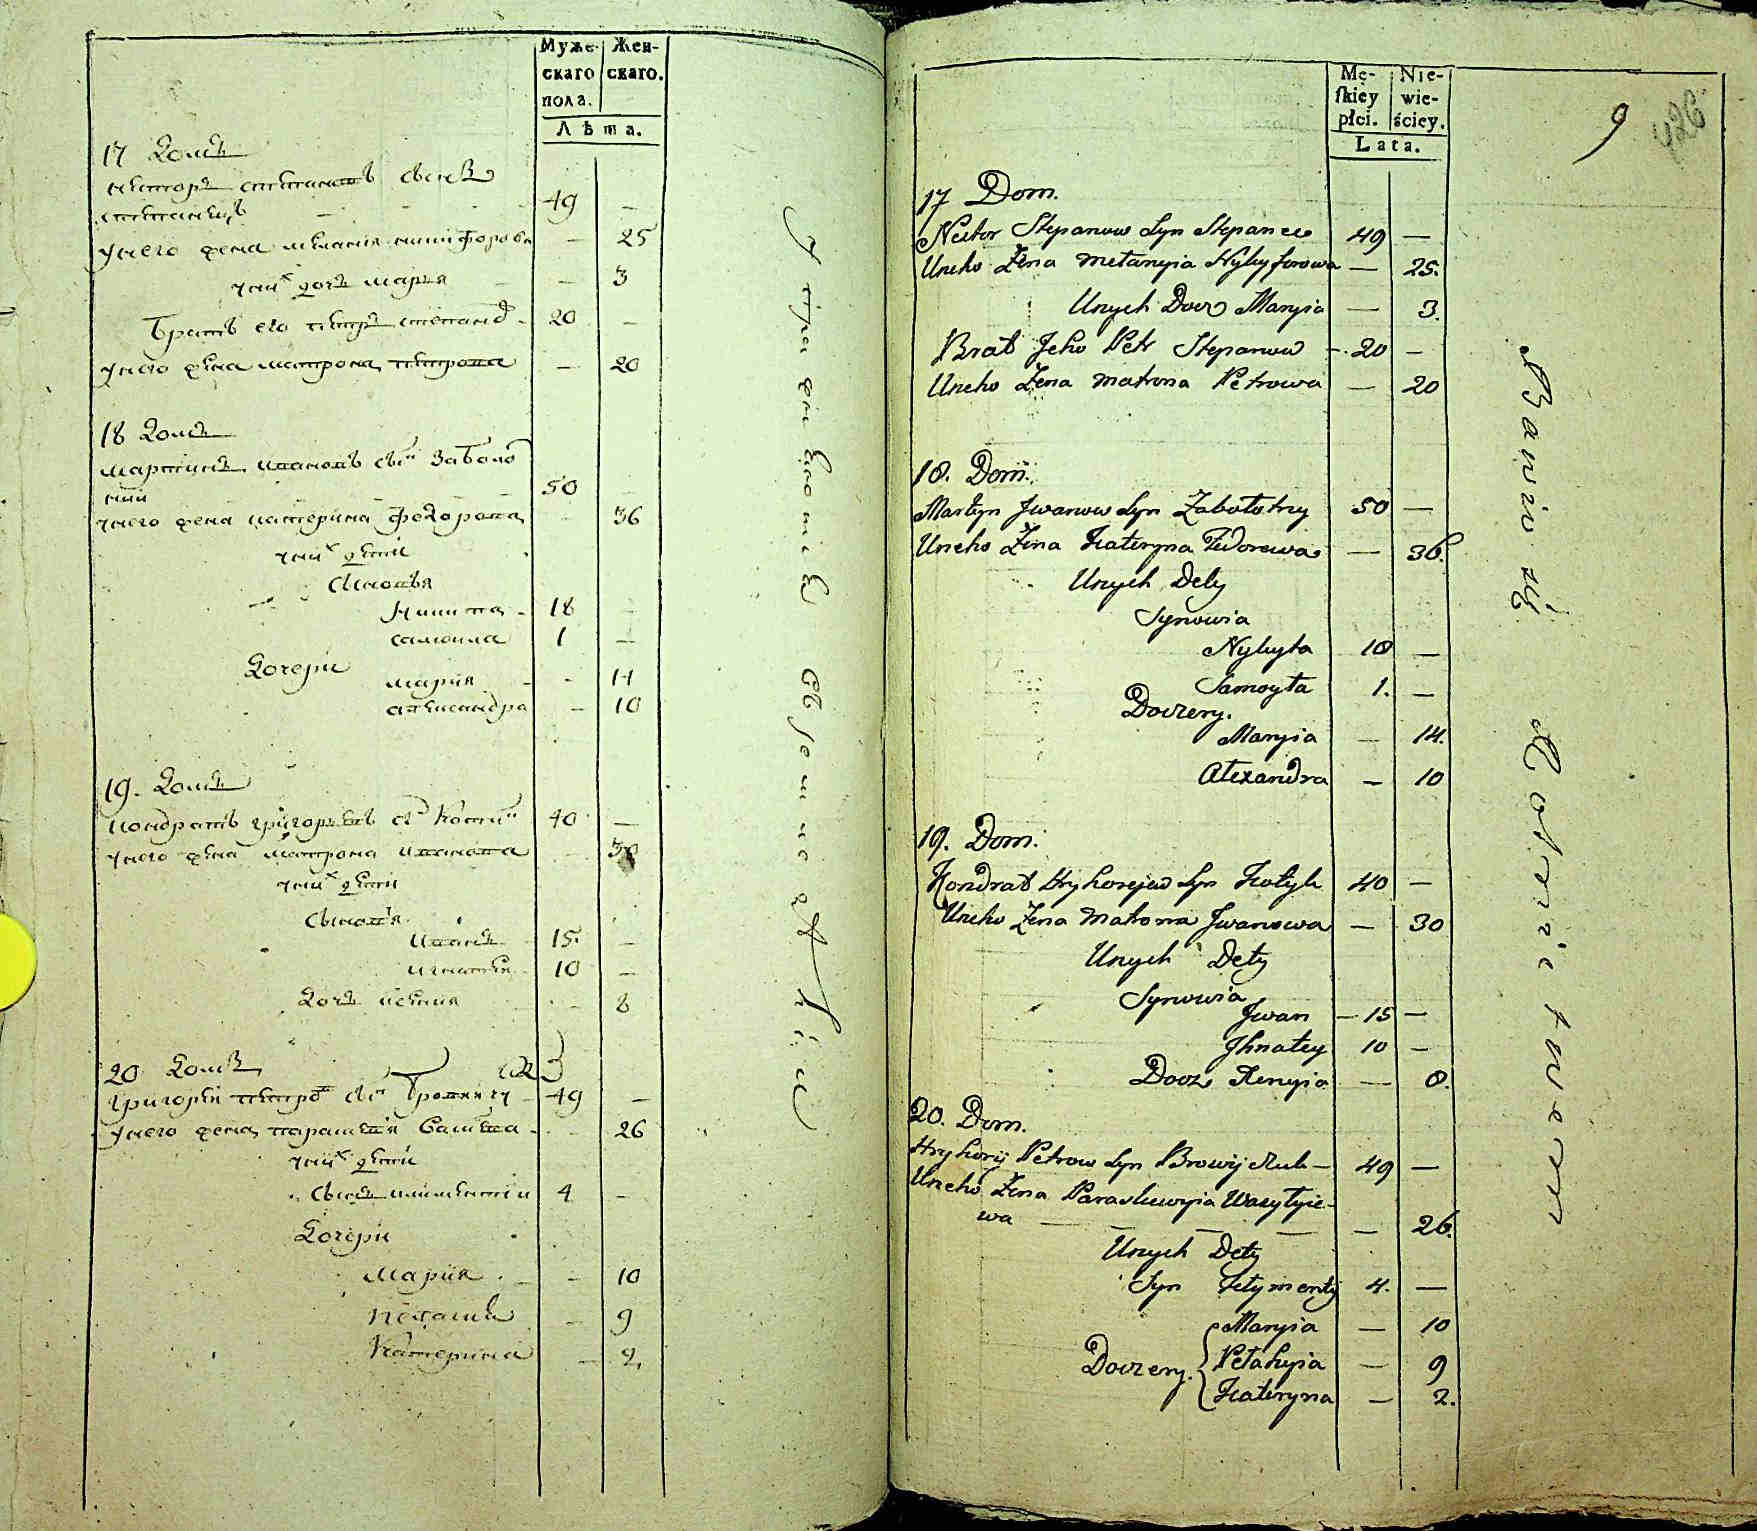 Муже-
скаго
пола.
Жен-
скаго.
Лѣта.
17 Домъ
Нестор степановъ сынъ
степанецъ 49 —
унего жена мелания никифорова — 25
унихъ дочь марья — 3
братъ его петръ степановъ 20 —
унего жена матрона петрова — 20
18 Домъ
мартинъ ивановъ сынъ заболо
тний 50 —
унего жена катерина федорова — 36
унихъ дети
сыновья
Никита 18 —
самоила 1 —
Дочери
мария — 14
александра — 10
19. Домъ
кондратъ григорьевъ сынъ 40 —
унего жена матрона иванова — 30
унихъ дети
сыновья
иванъ 15 —
игнатий 10 —
дочь ксения — 8
20 Домъ
григорий петровъ сынъ 49 —
унего жена параскевия — 26
унихъ дети
сынъ климентий 4 —
Дочери
Мария — 10
пелагия — 9
Катерина — 2
упражняется въ
Mę-
ſkiey
płci.
Nie-
wie-
ściey.
Lata.
9
17 Dom.
Nestor Stepanow Syn Stepanec 49 —
Uneho Żena Melanyia Nykyforowa — 25.
Unych Docz Maryia — 3.
Brat Jeho Petr Stepanow 20 —
Uneho Żena Matrona Petrowa — 20
18. Dom.
Martyn Jwanow Syn Zabołotny 50 —
Uneho Żena Kateryna Fedorowa — 36.
Unych Dety
Synowia
Nykyta 18 —
Samoyła 1. —
Doczery.
Maryia — 14.
Alexandra — 10
19. Dom.
Kondrat Hryhorejew Syn Kotyk 40 —
Uneho Żena Matrona Jwanowa — 30
Unych Dety
Synowia
Jwan — 15 —
Jhnatey 10 —
Docz Xenyia — 8.
20. Dom.
Hryhorij Petrow Syn 49 —
Uneho Żena Paraskewyia Wasylyie-
wa — 26.
Unych Dety
Syn Kłymentij 4. —
Doczery.
Maryia — 10
Pełahyia — 9
Kateryna — 2.
Bawio się Rolnictwem